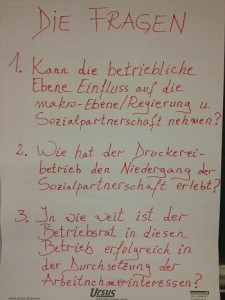 DIE FRAGEN
1. Kann die betriebliche
Ebene Einfluss auf die
makro-Ebene/Regierung u.
Sozialpartnerschaft nehmen?
2. Wie hat der Druckerei-
betrieb den Niedergang der
Sozialpartnerschaft erlebt?
3. In wie weit ist der
Betriebsrat in diesen
Betrieb erfolgreich in
der Durchsetzung der
Arbeitnehmerinteressen?
URSUS